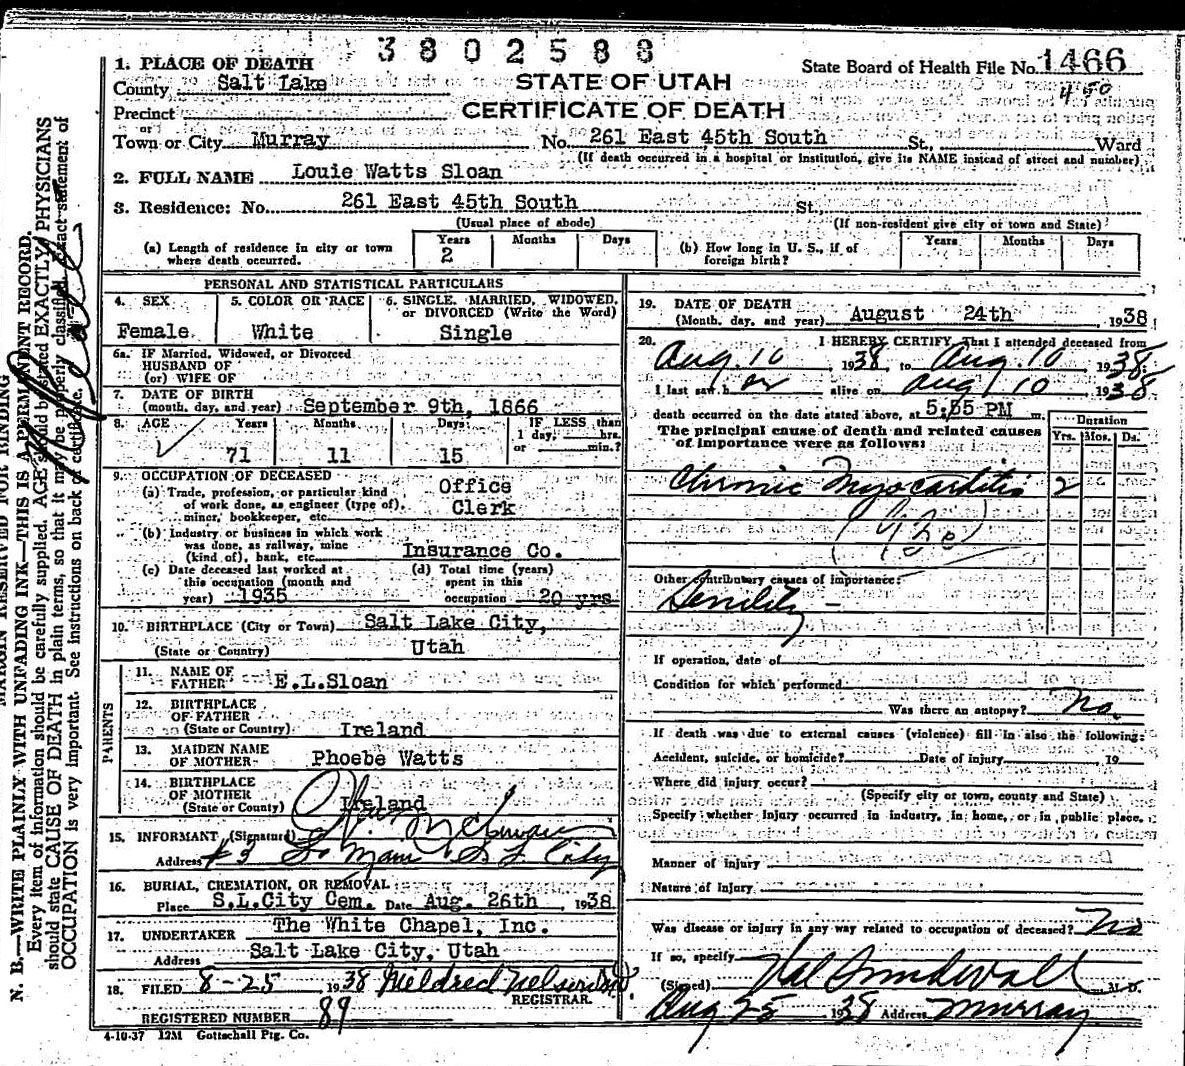 3802588
State Board of Health File No. 1466
450
1. PLACE OF DEATH
County Salt Lake
STATE OF UTAH
CERTIFICATE OF DEATH
Precinct
or
Town or City Murray No. 261 East 45th South St., Ward
(If death occurred in a hospital or institution, give its NAME instead of street and number)
2. FULL NAME Louie Watts Sloan
3. Residence: No. 261 East 45th South St.
(Usual place of abode) (If non-resident give city or town and State)
(a) Length of residence in city or town where death occurred. Years 2 Months Days
(b) How long in U. S., if of foreign birth? Years Months Days
PERSONAL AND STATISTICAL PARTICULARS
4. SEX Female
5. COLOR OR RACE White
6. SINGLE, MARRIED, WIDOWED, or DIVORCED (Write the Word) Single
6a. IF Married, Widowed, or Divorced
HUSBAND OF
(or) WIFE OF
7. DATE OF BIRTH
(month, day, and year) September 9th, 1866
8. AGE Years 71 Months 11 Days 15
IF LESS than 1 day, hrs. or min.?
9. OCCUPATION OF DECEASED
(a) Trade, profession, or particular kind of work done, as engineer (type of), miner, bookkeeper, etc. Office Clerk
(b) Industry or business in which work was done, as railway, mine (kind of), bank, etc. Insurance Co.
(c) Date deceased last worked at this occupation (month and year) 1935
(d) Total time (years) spent in this occupation 20 yrs
10. BIRTHPLACE (City or Town) Salt Lake City,
(State or Country) Utah
PARENTS
11. NAME OF FATHER E.L.Sloan
12. BIRTHPLACE OF FATHER
(State or Country) Ireland
13. MAIDEN NAME OF MOTHER Phoebe Watts
14. BIRTHPLACE OF MOTHER
(State or County) Ireland
15. INFORMANT (Signature)
Address #3 So Main S L City
16. BURIAL, CREMATION, OR REMOVAL
Place S.L.City Cem. Date Aug. 26th, 1938
17. UNDERTAKER The White Chapel, Inc.
Address Salt Lake City, Utah
18. FILED 8-25 1938 Mildred Nelson
REGISTRAR.
REGISTERED NUMBER 89
4-10-37 12M Gottschall Ptg. Co.
19. DATE OF DEATH
(Month, day, and year) August 24th, 1938
20. I HEREBY CERTIFY, That I attended deceased from
Aug. 10 1938, to Aug. 10 1938.
I last saw her alive on Aug 10 1938
death occurred on the date stated above, at 5:55 PM m.
The principal cause of death and related causes of importance were as follows:
Duration
Yrs. Mos. Ds.
Chronic Myocarditis 2
Other contributory causes of importance:
Senility -
If operation, date of
Condition for which performed
Was there an autopsy? No.
If death was due to external causes (violence) fill in also the following:
Accident, suicide, or homicide? Date of injury 19
Where did injury occur?
(Specify city or town, county and State)
Specify whether injury occurred in industry, in home, or in public place.
Manner of injury
Nature of injury
Was disease or injury in any way related to occupation of deceased? No
If so, specify
(Signed) Val Sundwall M. D.
Aug 25 1938 Address Murray
MARGIN RESERVED FOR BINDING
N. B.—WRITE PLAINLY WITH UNFADING INK—THIS IS A PERMANENT RECORD.
Every item of information should be carefully supplied. AGE should be stated EXACTLY. PHYSICIANS
should state CAUSE OF DEATH in plain terms, so that it may be properly classified. Exact statement of
OCCUPATION is very important. See instructions on back of certificate.